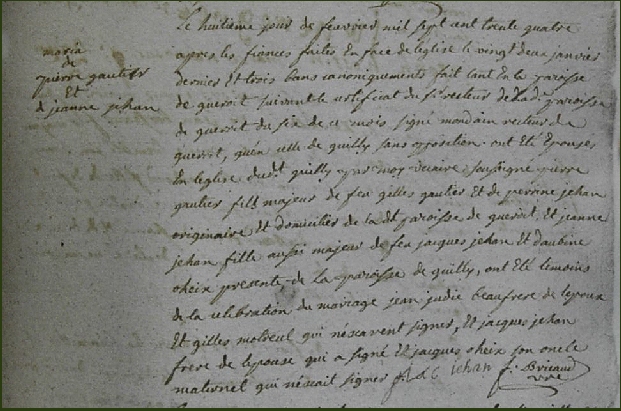 mariage
de
pierre gautier
Et
d jeanne jehan
Le huitieme jour de fevrier mil sept cent trente quatre
apres les fiances faites En face de leglise le vingt deux janvier
dernier Et trois bans canoniquements fait tant En la paroisse
de gueroit suivant le certificat du sr recteur de lad. paroisse
de gueroit du six de ce mois signé mondain recteur de
gueroit, qu'en celle de quilly sans opposition ont Eté Epouses
En leglise dudt quilly par moy vicaire soussigne pierre
gautier fils majeur de feu gilles gautier Et de perrine jehan
originaire et domicilié de la dt paroisse de gueroit, Et jeanne
jehan fille aussi majeur de feu jacques jehan Et daubine
oheix presente de la paroisse de quilly, ont Eté temoins
de la celebration du mariage jean judic beaufrere de lepoux
Et gilles qui nescavent signer, Et jacques jehan
frere de lepouse qui a signé Et jacques oheix son oncle
maternel qui nescait signer jehan f. Briaud
vire